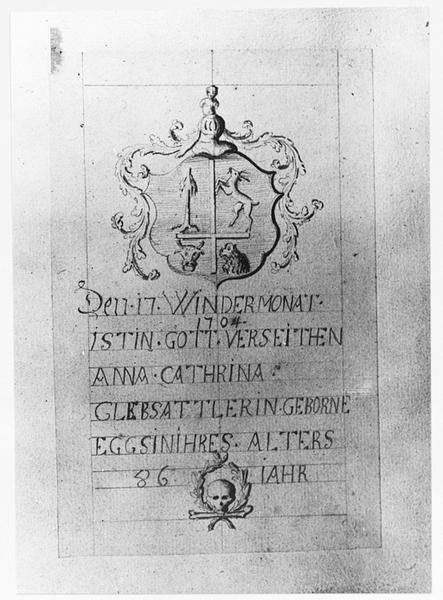 Den · 17 · WINDERMONAT ·
1704 ·
ISTIN · GOTT · VERSEITHEN
ANNA · CATHRINA ·
GLEBSATTLERIN · GEBORNE
EGGSINIHRES · ALTERS
86 · IAHR